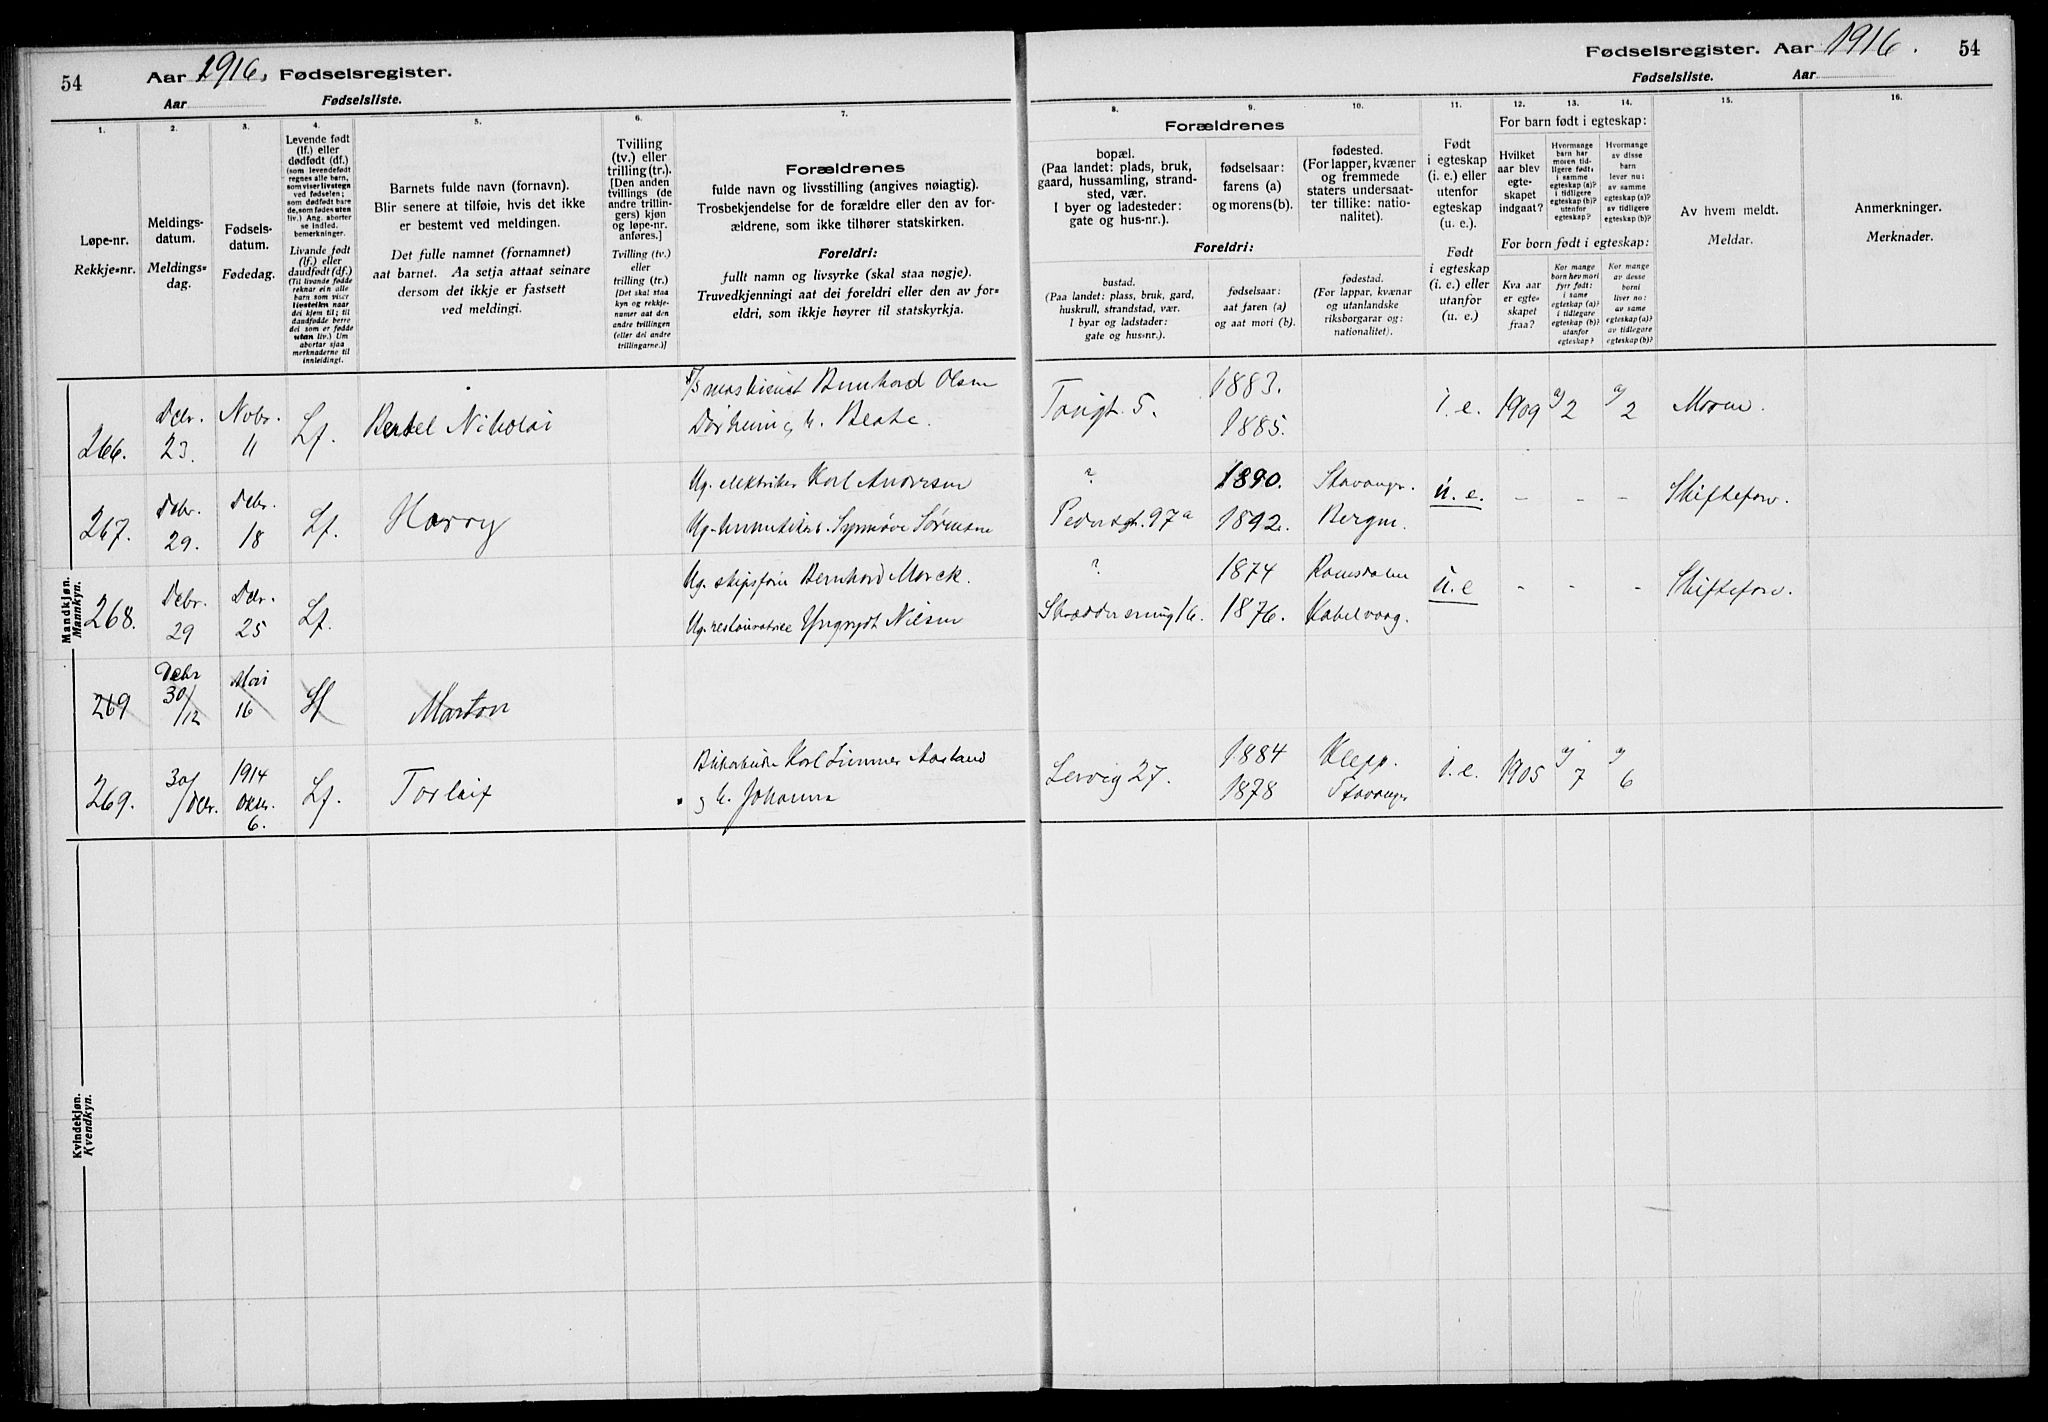 54
Aar 1916. Fødselsregister.
Aar Fødselsliste.
1.
2.
3.
4.
5.
6.
7.
Løpe-nr.
Rekkje-nr.
Meldings-
datum.
Meldings-
dag.
Fødsels-
datum.
Fødedag.
Levende født
(lf.) eller
dødfødt (df.)
(som levendefødt
regnes alle barn,
som viser livstegn
ved fødselen;
som dødfødt bare
de, som fødes uten
liv.) Ang. aborter
se indled.
bemerkninger.
Livande født
(lf.) eller
daudfødt (df.)
(Til livande fødde
reknar ein alle
barn som viser
livsteikn naar
dei kjem til; til
daudfødde berre
dei som er fødde
utan liv.) Um
abortar sjaa
merknaderne til
innleidingi.
Barnets fulde navn (fornavn).
Blir senere at tilføie, hvis det ikke
er bestemt ved meldingen.
Det fulle namnet (fornamnet)
aat barnet. Aa setja attaat seinare
dersom det ikkje er fastsett
ved meldingi.
Tvilling
(tv.) eller
trilling (tr.).
[Den anden
tvillings (de
andre trillin-
gers) kjøn
og løpe-nr.
anføres.]
Tvilling (tv.)
eller
trilling (tr.)
[Det skal staa
kyn og rekkje-
numer aat den
andre tvillingen
(eller dei andre
trillingarne.)]
Forældrenes
fulde navn og livsstilling (angives nøiagtig).
Trosbekjendelse for de forældre eller den av for-
ældrene, som ikke tilhører statskirken.
Foreldri:
fullt namn og livsyrke (skal staa nøgje).
Truvedkjenningi aat dei foreldri eller den av for-
eldri, som ikkje høyrer til statskyrkja.
Mandkjøn.
Mannkyn.
266. Debr. 23. Novbr. 11 Lf. Bertel Nikolai maskinist Bernhard Olsen
Dørheim og h. Beate.
267. Debr. 29. Debr. 18 Lf. Harry Ug. elektriker Karl Andersen
Ug. Synnøve Sørensen
268. Debr. 29 Debr. 25 Lf. Ug. skipsfører Bernhard Marck.
Ug. restauratrice Yngrydt Nilsen
269 Debr 30/12 Mai 16 Lf Marton
269. 30/Debr. 1914 Oktbr. 6. Lf. Torleif Karl Aasland
og h. Johanna
Kvindekjøn.
Kvendkyn.
Fødselsregister. Aar 1916. 54
Fødselsliste. Aar
8.
9.
10.
11.
12.
13.
14.
15.
16.
Forældrenes
bopæl.
(Paa landet: plads, bruk,
gaard, hussamling, strand-
sted, vær.
I byer og ladesteder:
gate og hus-nr.).
fødselsaar:
farens (a)
og morens (b).
fødested.
(For lapper, kvæner
og fremmede
staters undersaat-
ter tillike: natio-
nalitet).
Foreldri:
bustad.
(Paa landet: plass, bruk, gard,
huskrull, strandstad, vær.
I byar og ladstader:
gate og hus-nr.).
fødselsaar:
aat faren (a)
og aat mori (b).
fødestad.
(For lappar, kvænar
og utanlandske
riksborgarar og:
nationalitet).
Født
i egteskap
(i. e.) eller
utenfor
egteskap
(u. e.).
Født
i egteskap
(i. e.) eller
utanfor
(u. e.).
For barn født i egteskap:
Hvilket
aar blev
egte-
skapet
indgaat?
Hvormange
barn har
moren tid-
ligere født:
i samme
egteskap (a)?
i tidligere
egteskap (b)?
utenfor
egteskap?
Hvormange
av disse
barn
lever nu:
av samme
egteskap (a)?
av tidligere
egteskap (b)?
For born født i egteskap:
Kva aar
er egte-
skapet
fraa?
Kor mange
born hev mori
fyrr født:
i same
egteskap (a)?
i tidlegare
egteskap (b)?
utanfor
egteskap?
Kor mange
av desse
borni
liver no:
av same
egteskap (a)?
av tidlegare
egteskap (b)?
Av hvem meldt.
Meldar.
Anmerkninger.
Merknader.
Tangt. 5. 1883. 1885. i. e. 1909 a/2 a/2 Moren.
? 1890. Stavanger. u. e. - - - Skifteforv.
Pedersgt. 97a 1892. Bergen.
? 1874 Romsdalen u. e - - - Skifteforv.
Skrædderenning 16. 1876. Kabelvaag.
Lervig 27. 1884 Klepp. i. e. 1905 a/7 a/6
1878 Stavanger